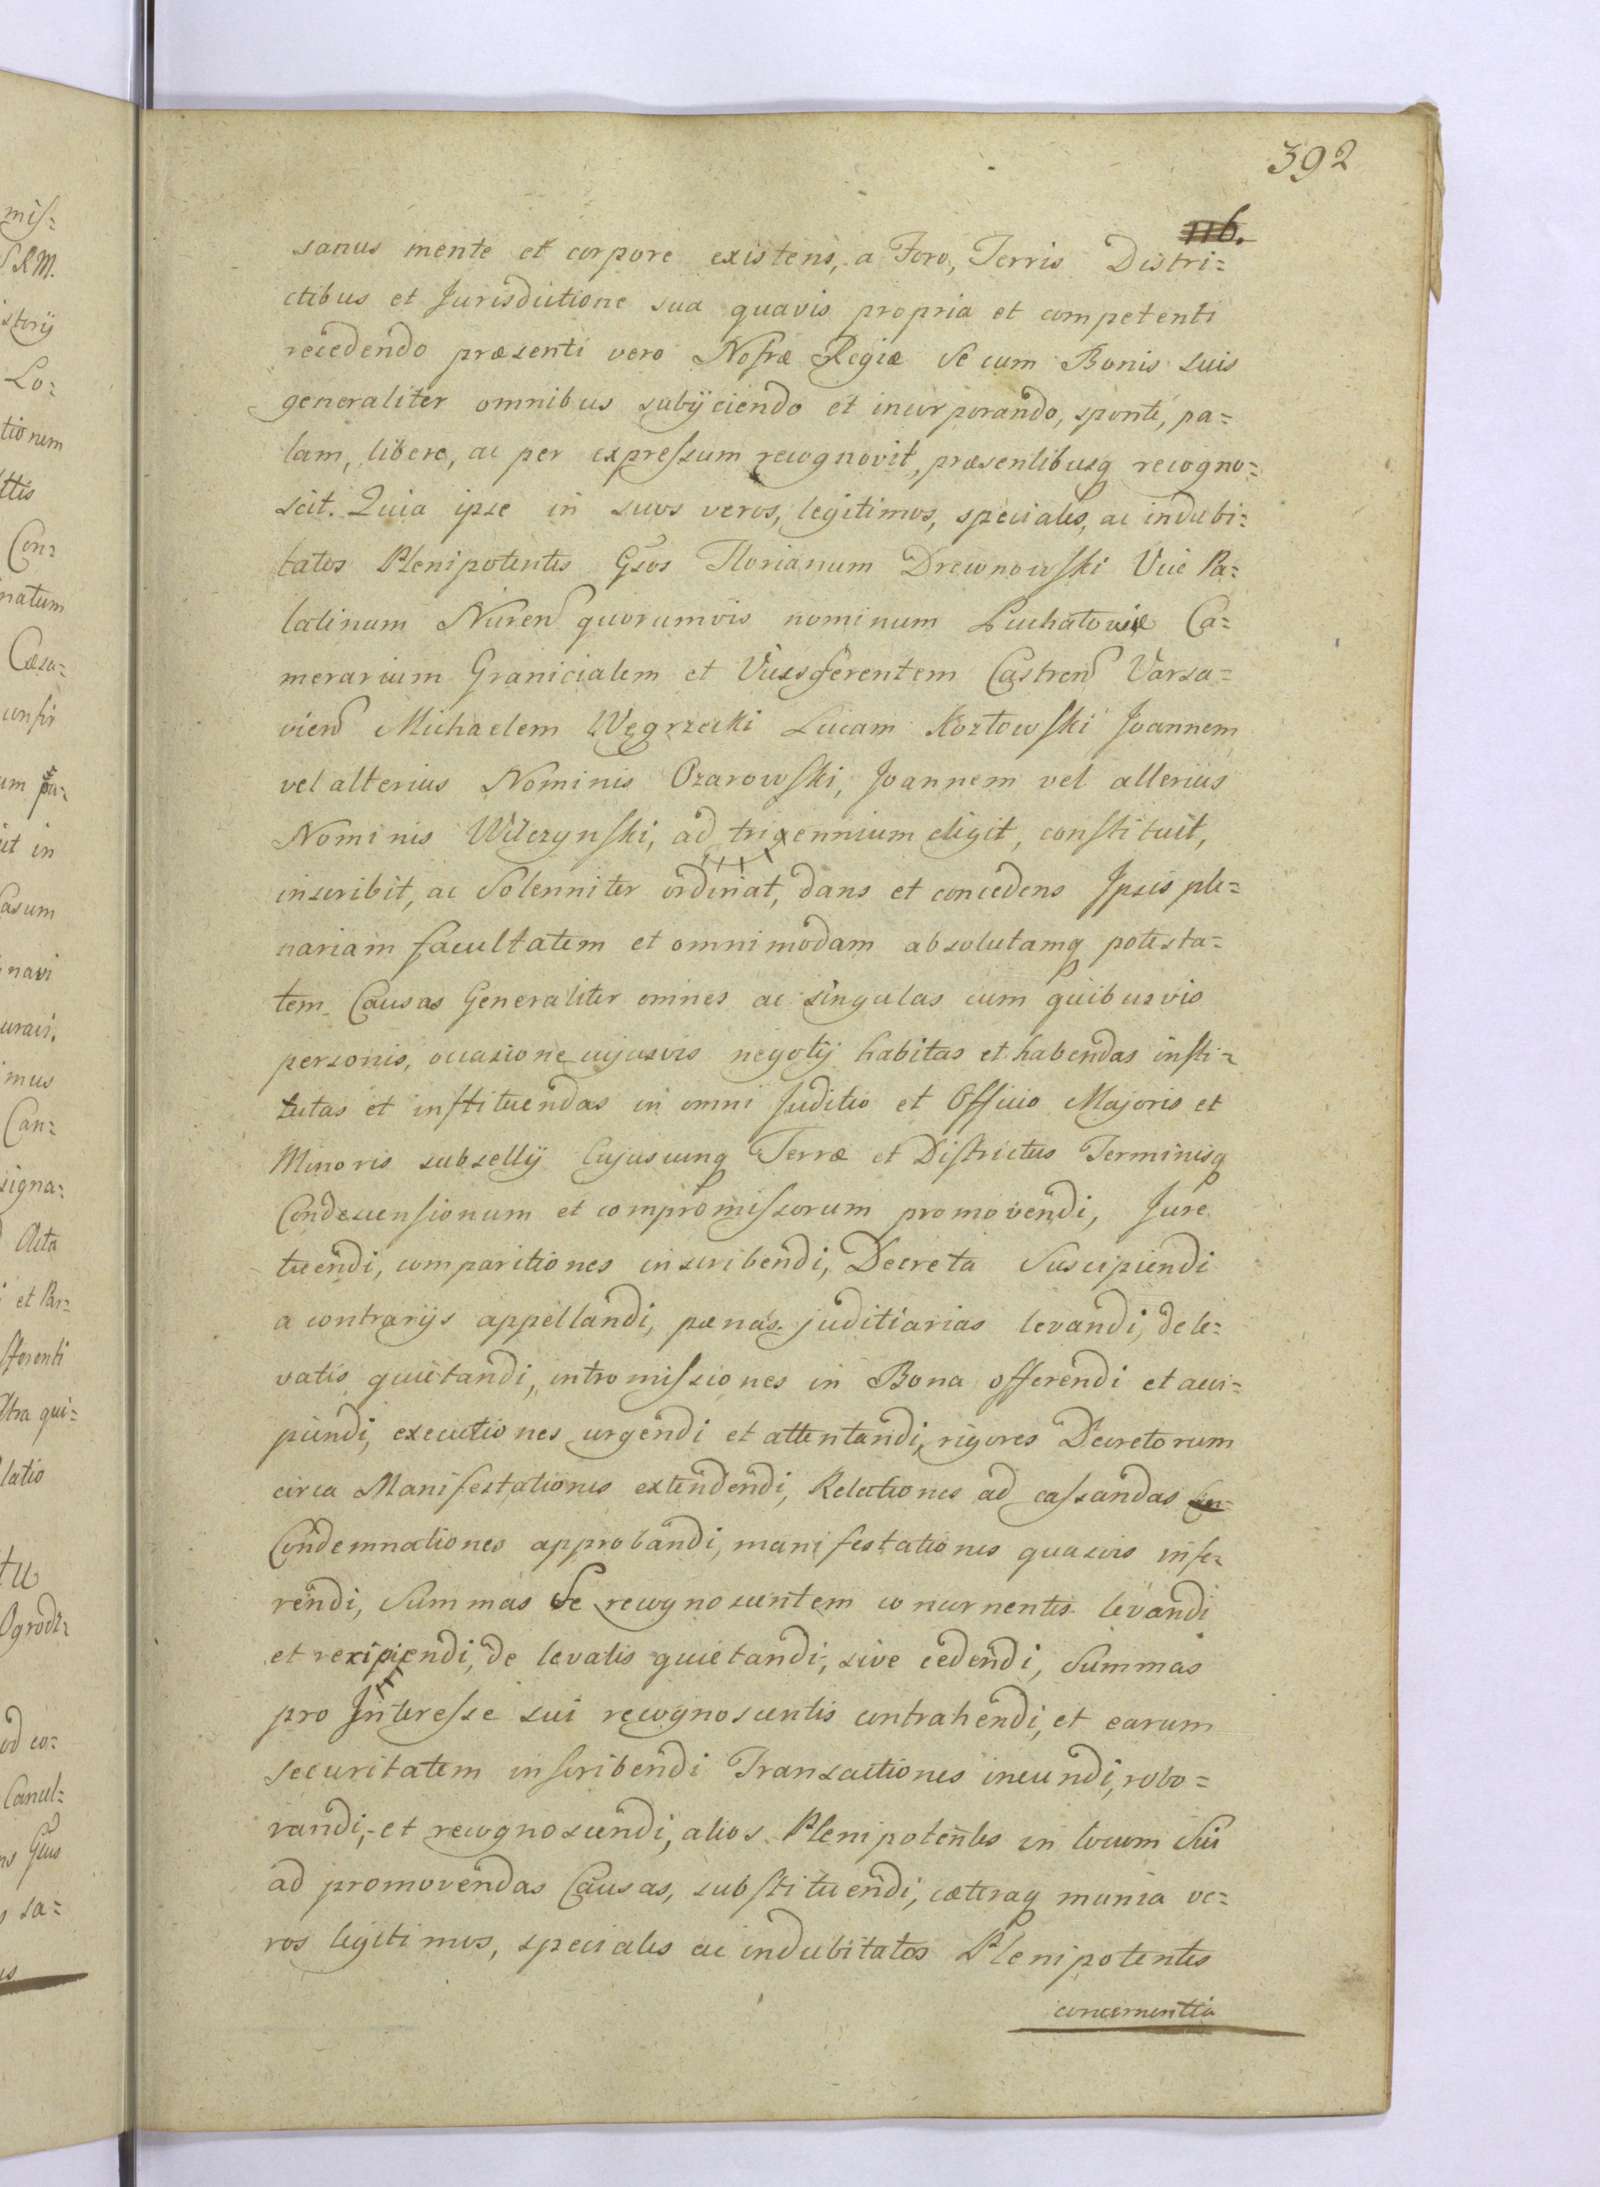 392
116.
sanus mente et corpore existens, a Foro, Terris Distri=
ctibus et Jurisdictione sua quavis propria et competenti
recedendo præsenti vero Nostræ Regiæ se cum Bonis suis
generaliter omnibus subijciendo et incorporando, sponte, pa=
lam, libere, ac per expressum recognovit, præsentibusq recogno=
scit. Quia ipse in suos veros, legitimos, speciales, ac indubi=
tatos Plenipotentes Gsos Florianum Drewnowski Vice Pa=
latinum Nuren quorumvis nominum Luchatowie Ca=
merarium Granicialem et Vicesgerentem Castren Varsa=
vien Michaelem Węgrzecki Lucam Kozłowski Joannem
vel alterius Nominis Ozarowski, Joannem vel alterius
Nominis Wilczynski, ad trigennium eligit, constituit,
inscribit, ac Solenniter ordinat, dans et concedens Ipsis ple=
nariam facultatem et omnimodam absolutamq potesta=
tem Causas Generaliter omnes ac singulas cum quibusvis
personis, occasione cujusvis negotij habitas et habendas insti=
tutas et instituendas in omni Juditio et Officio Majoris et
Minoris subsellij Cujuscunq Terræ et Districtus Terminisq
Condescensionum et compromissorum promovendi, Jure
tuendi, comparitiones inscribendi, Decreta Suscipiendi
a contrarijs appellandi, pænas juditiarias levandi, de le=
vatis quietandi, intromissiones in Bona offerendi et acci=
piendi, executiones urgendi et attentandi, rigores Decretorum
circa Manifestationes extendendi, Relationes ad cassandas
Condemnationes approbandi, manifestationes quasvis infe=
rendi, Summas Se recognoscentem concernentes levandi
et recipiendi, de levatis quietandi, sive cedendi, Summas
pro Interesse sui recognoscentis contrahendi, et earum
securitatem inscribendi Transactiones ineundi, robo=
randi, et recognoscendi, alios Plenipotentes in locum Sui
ad promovendas Causas, substituendi, cæteraq munia ve=
ros legitimos, speciales ac indubitatos Plenipotentes
concernentia